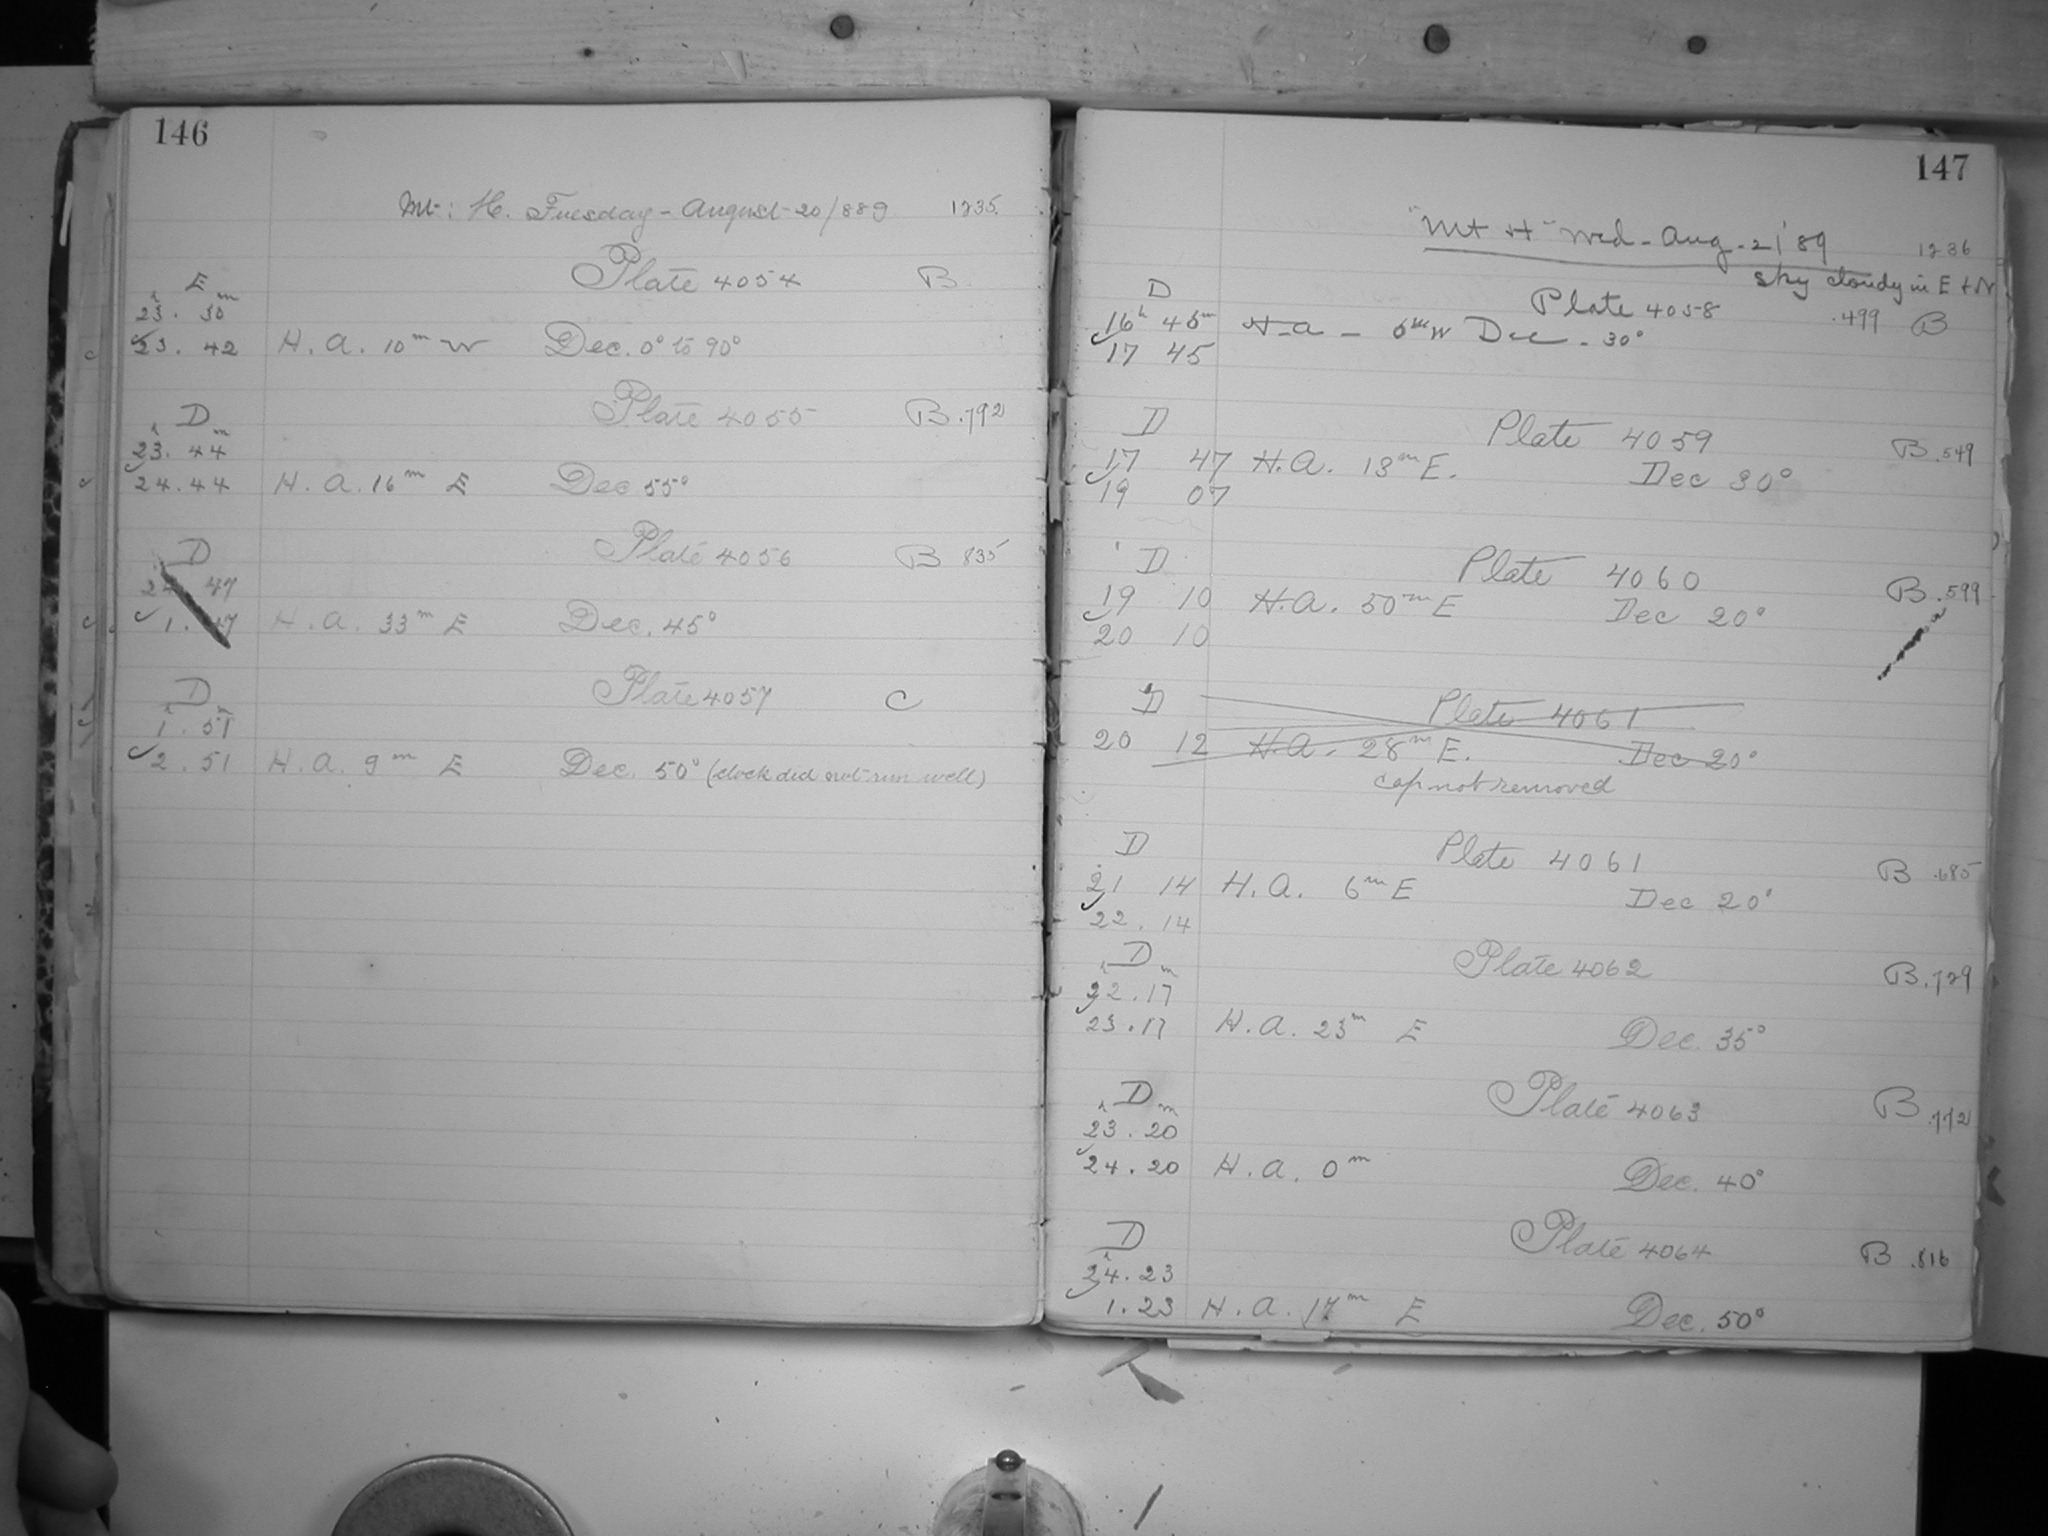 146
Mt. H. Tuesday - August 20/889 1235.
Plate 4054 B.
E
h m
23. 30
23. 42 H. A. 10 m W Dec. 0° to 90°
Plate 4055 B .792
D
h m
23. 44
24. 44 H. A. 16 m E Dec. 55°
Plate 4056 B 835
D
24 47
1. 47 H. A. 33 m E Dec. 45°
Plate 4057 C
D
1. 51
2. 51 H. A. 9 m E Dec. 50° (clock did not run well)
147
"Mt H" Wed - Aug - 21 '89 1236
sky cloudy in E + N
D Plate 4058 .499 B
16h 45m H.A - 5m W Dec - 30°
17 45
D Plate 4059 B .549
17 47 H.A. 13m E. Dec 30°
19 07
D Plate 4060 B .599
19 10 H.A. 50m E Dec 20°
20 10
D Plate 4061
20 12 H.A. 28m E. Dec 20°
cap not removed
D Plate 4061 B .685
21 14 H.A. 6m E Dec 20°
22. 14
D Plate 4062 B .729
h m
22. 17
23. 17 H. A. 23m E Dec. 35°
D Plate 4063 B .772
h m
23. 20
24. 20 H. A. 0m Dec. 40°
D Plate 4064 B .816
h
24. 23
1. 23 H. A. 17m E Dec. 50°